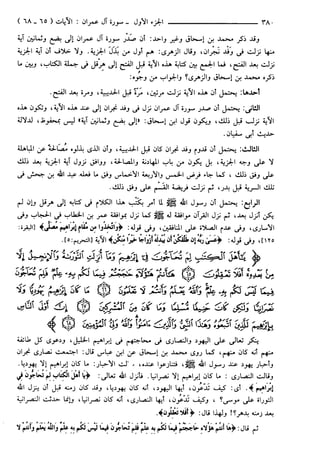 ٣٨٠ ــــــ الجزء الأول - سورة آل عمران : الآيات ( ٦٥ - ٦٨ )
وقد ذكر محمد بن إسحاق وغير واحد: أن صدر سورة آل عمران إلى بضع وثمانين آية
منها نزلت في وفد نجران، وقال الزهري: هم أول من بذل الجزية. ولا خلاف أن آية الجزية
نزلت بعد الفتح، فما الجمع بين كتابة هذه الآية قبل الفتح إلى هرقل في جملة الكتاب، وبين ما
ذكره محمد بن إسحاق والزهري؟ والجواب من وجوه:
أحدها: يحتمل أن هذه الآية نزلت مرتين، مرة قبل الحديبية، ومرة بعد الفتح.
الثاني: يحتمل أن صدر سورة آل عمران نزل في وفد نجران إلى عند هذه الآية، وتكون هذه
الآية نزلت قبل ذلك، ويكون قول ابن إسحاق: «إلى بضع وثمانين آية» ليس بمحفوظ، لدلالة
حديث أبي سفيان.
الثالث: يحتمل أن قدوم وفد نجران كان قبل الحديبية، وأن الذي بذلوه مصالحة عن المباهلة
لا على وجه الجزية، بل يكون من باب المهادنة والمصالحة، ووافق نزول آية الجزية بعد ذلك
على وفق ذلك، كما جاء فرض الخمس والأربعة الأخماس وفق ما فعله عبد الله بن جحش في
تلك السرية قبل بدر، ثم نزلت فريضة القسم على وفق ذلك.
الرابع: يحتمل أن رسول الله ﷺ لما أمر بكتب هذا الكلام في كتابه إلى هرقل وإن لم
يكن أنزل بعد، ثم نزل القرآن موافقة له ﷺ كما نزل بموافقة عمر بن الخطاب في الحجاب وفي
الأسارى، وفي عدم الصلاة على المنافقين، وفي قوله: ﴿وَاتَّخِذُوا مِن مَّقَامِ إِبْرَاهِيمَ مُصَلًّى﴾ [البقرة:
١٢٥]، وفي قوله: ﴿عَسَىٰ رَبُّهُ إِن طَلَّقَكُنَّ أَن يُبْدِلَهُ أَزْوَاجًا خَيْرًا مِّنكُنَّ﴾ الآية [التحريم:٥].
﴿يَا أَهْلَ الْكِتَابِ لِمَ تُحَاجُّونَ فِي إِبْرَاهِيمَ وَمَا أُنزِلَتِ التَّوْرَاةُ وَالْإِنجِيلُ إِلَّا
مِن بَعْدِهِ أَفَلَا تَعْقِلُونَ ﴿٦٥﴾ هَا أَنتُمْ هَٰؤُلَاءِ حَاجَجْتُمْ فِيمَا لَكُم بِهِ عِلْمٌ فَلِمَ تُحَاجُّونَ
فِيمَا لَيْسَ لَكُم بِهِ عِلْمٌ وَاللَّهُ يَعْلَمُ وَأَنتُمْ لَا تَعْلَمُونَ ﴿٦٦﴾ مَا كَانَ إِبْرَاهِيمُ يَهُودِيًّا وَلَا
نَصْرَانِيًّا وَلَٰكِن كَانَ حَنِيفًا مُّسْلِمًا وَمَا كَانَ مِنَ الْمُشْرِكِينَ ﴿٦٧﴾ إِنَّ أَوْلَى النَّاسِ
بِإِبْرَاهِيمَ لَلَّذِينَ اتَّبَعُوهُ وَهَٰذَا النَّبِيُّ وَالَّذِينَ آمَنُوا وَاللَّهُ وَلِيُّ الْمُؤْمِنِينَ ﴿٦٨﴾
ينكر تعالى على اليهود والنصارى في محاجتهم في إبراهيم الخليل، ودعوى كل طائفة
منهم أنه كان منهم، كما روى محمد بن إسحاق عن ابن عباس قال: اجتمعت نصارى نجران
وأحبار يهود عند رسول الله ﷺ فتنازعوا عنده، ـالت الأحبار: ما كان إبراهيم إلا يهوديا.
وقالت النصارى : ما كان إبراهيم إلا نصرانيا. فأنزل الله تعالى: ﴿يَا أَهْلَ الْكِتَابِ لِمَ تُحَاجُّونَ فِي
إِبْرَاهِيمَ﴾. أي: كيف تدعون، أيها اليهود، أنه كان يهوديا، وقد كان زمنه قبل أن ينزل الله
التوراة على موسى؟ ، وكيف تدعون، أيها النصارى، أنه كان نصرانيا، وإنما حدثت النصرانية
بعد زمنه بدهر؟! ولهذا قال: ﴿أَفَلَا تَعْقِلُونَ﴾.
ثم قال: ﴿هَا أَنتُمْ هَٰؤُلَاءِ حَاجَجْتُمْ فِيمَا لَكُم بِهِ عِلْمٌ فَلِمَ تُحَاجُّونَ فِيمَا لَيْسَ لَكُم بِهِ عِلْمٌ وَاللَّهُ يَعْلَمُ وَأَنتُمْ لَا